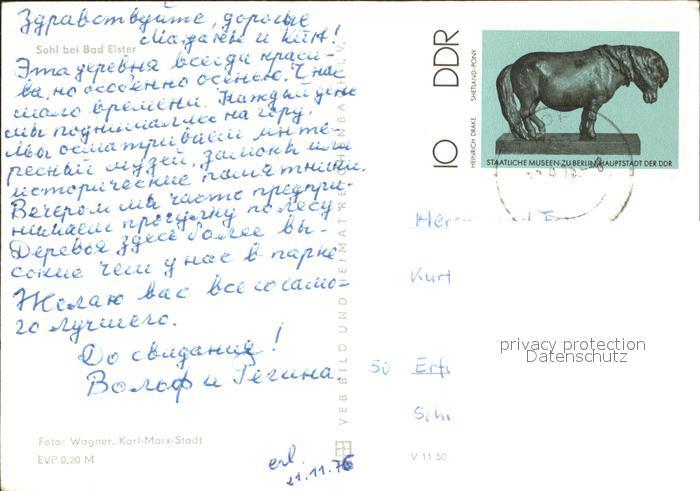 Здравствуйте, дорогие
Мадлен и Кит!
Sohl bei Bad Elster
Эта деревня всегда краси-
ва, но особенно осенью. У нас
мало времени. Каждый день
мы поднимались на гору.
Мы осматриваем инте-
ресный музей, замоны или
исторические памятники.
Вечером мы часто предпри-
нимаем прогулку по лесу
Деревья здесь более вы-
сокие чем у нас в парке
Желаю вас всего само-
го лучшего.
До свидания!
Вольф и Регина.
Foto: Wagner, Karl-Marx-Stadt
EVP 0,20 M
erl.
21.11.76
VEB BILD UND HEIMAT REICHENBACH I. V.
10 DDR
HEINRICH DRAKE SHETLAND-PONY
STAATLICHE MUSEEN ZU BERLIN, HAUPTSTADT DER DDR
Kurt
50 Erf
Sch
V 11 50
privacy protection
Datenschutz